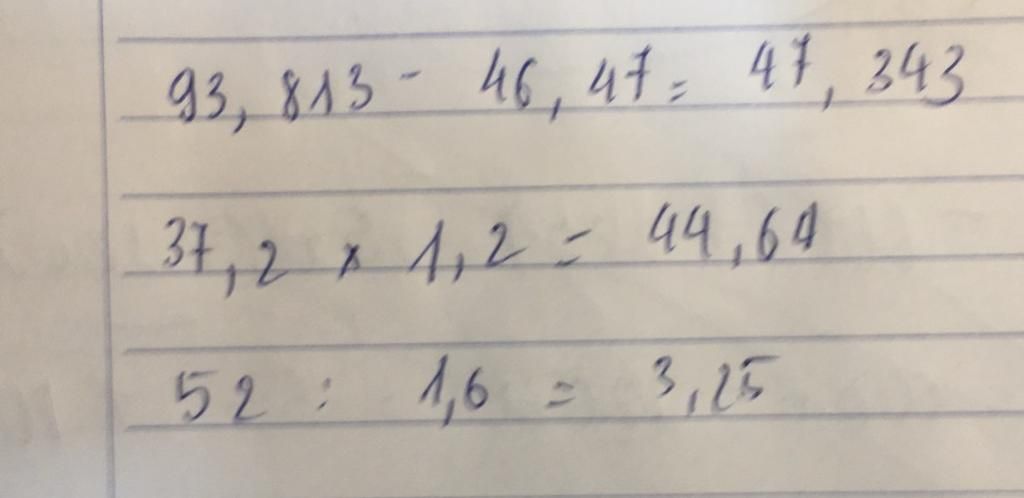 93,813 - 46,47 = 47,343
37,2 x 1,2 = 44,64
52 : 1,6 = 3,25